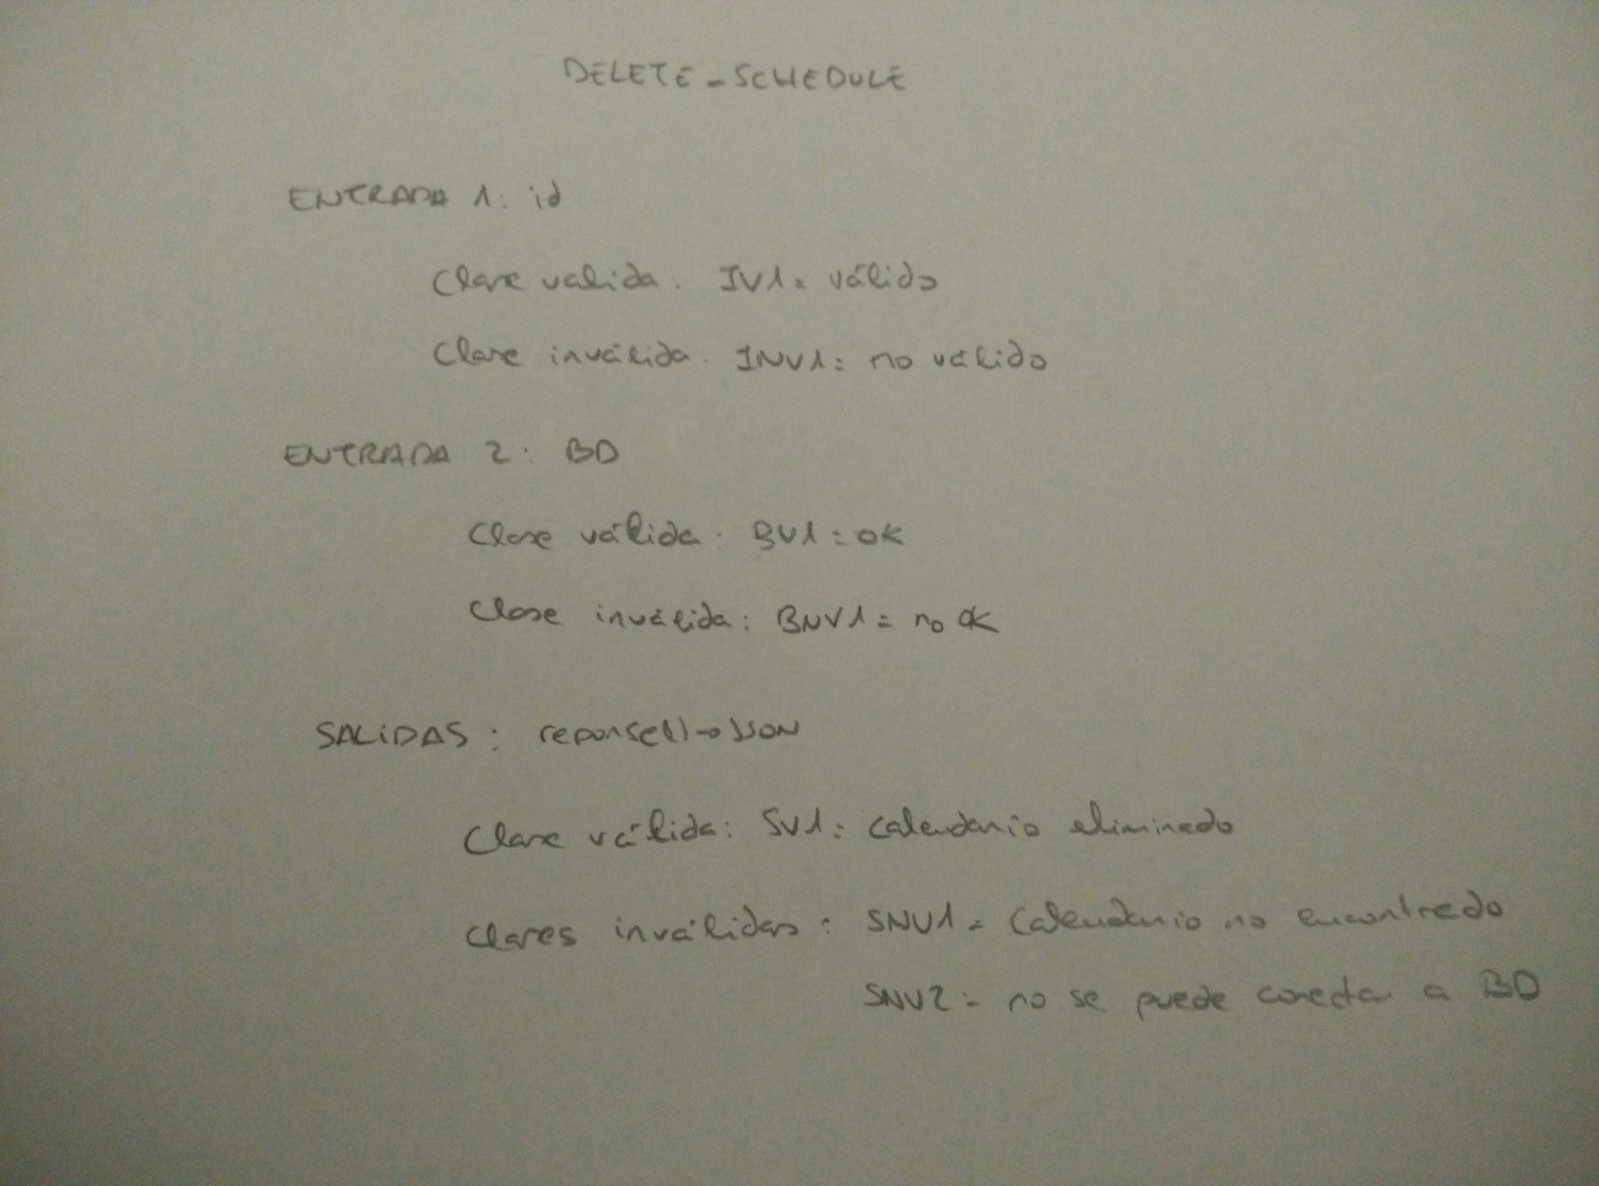 DELETE_SCHEDULE
ENTRADA 1: id
Clase valida: IV1= válido
Clase inválida: INV1= no válido
ENTRADA 2: BD
Clase válida: BV1= ok
Clase inválida: BNV1= no ok
SALIDAS: reponse()→JSON
Clase válida: SV1= calendario eliminado
clases inválidas: SNV1= calendario no encontrado
SNV2= no se puede conectar a BD